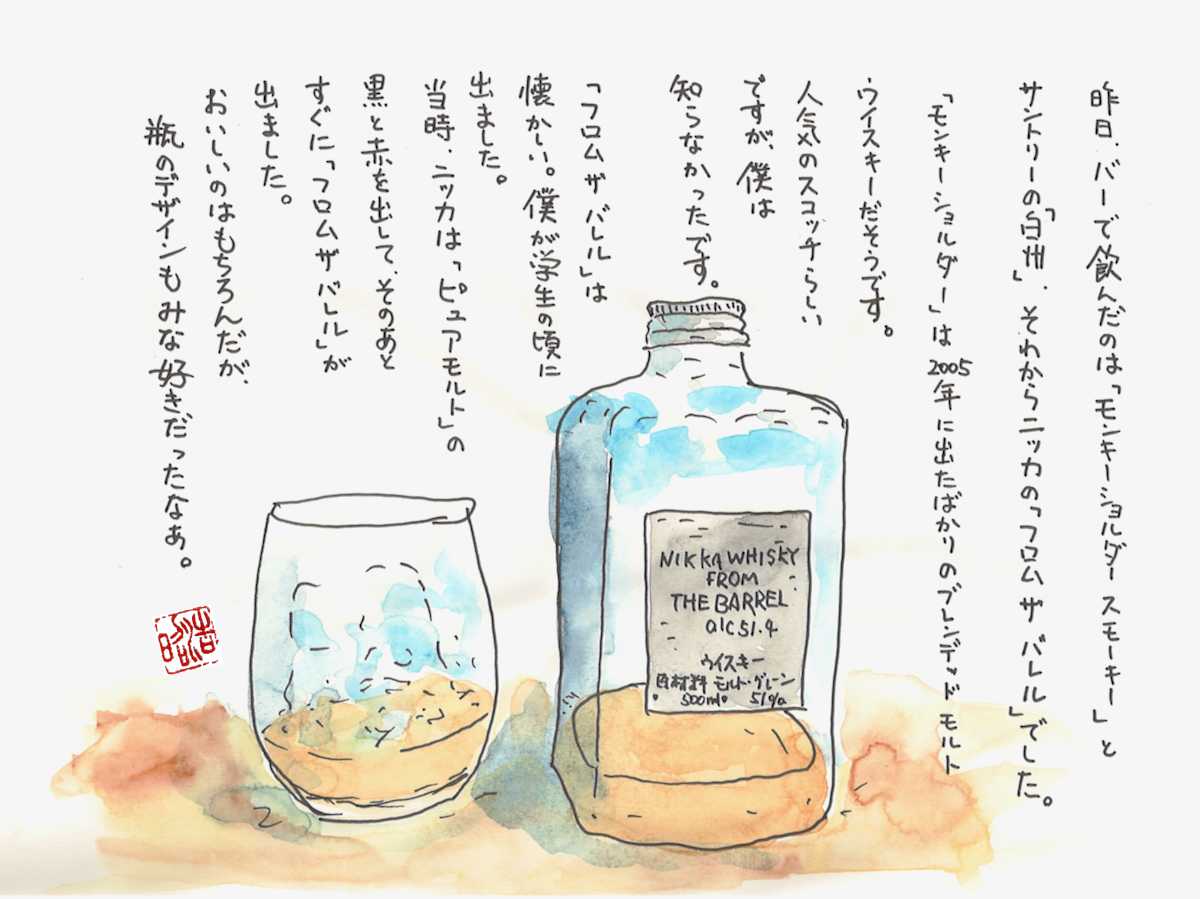 昨日、バーで飲んだのは「モンキーショルダースモーキー」と
サントリーの「白州」、それからニッカの「フロムザバレル」でした。
「モンキーショルダー」は2005年に出たばかりのブレンデッドモルト
ウイスキーだそうです。
人気のスコッチらしい
ですが、僕は
知らなかったです。
「フロムザバレル」は
懐かしい。僕が学生の頃に
出ました。
当時、ニッカは「ピュアモルト」の
黒と赤を出して、そのあと
すぐに「フロムザバレル」が
出ました。
おいしいのはもちろんだが、
瓶のデザインもみな好きだったなぁ。
NIKKA WHISKY
FROM
THE BARREL
alc 51.4
ウイスキー
原材料 モルト・グレーン
500ml 51%